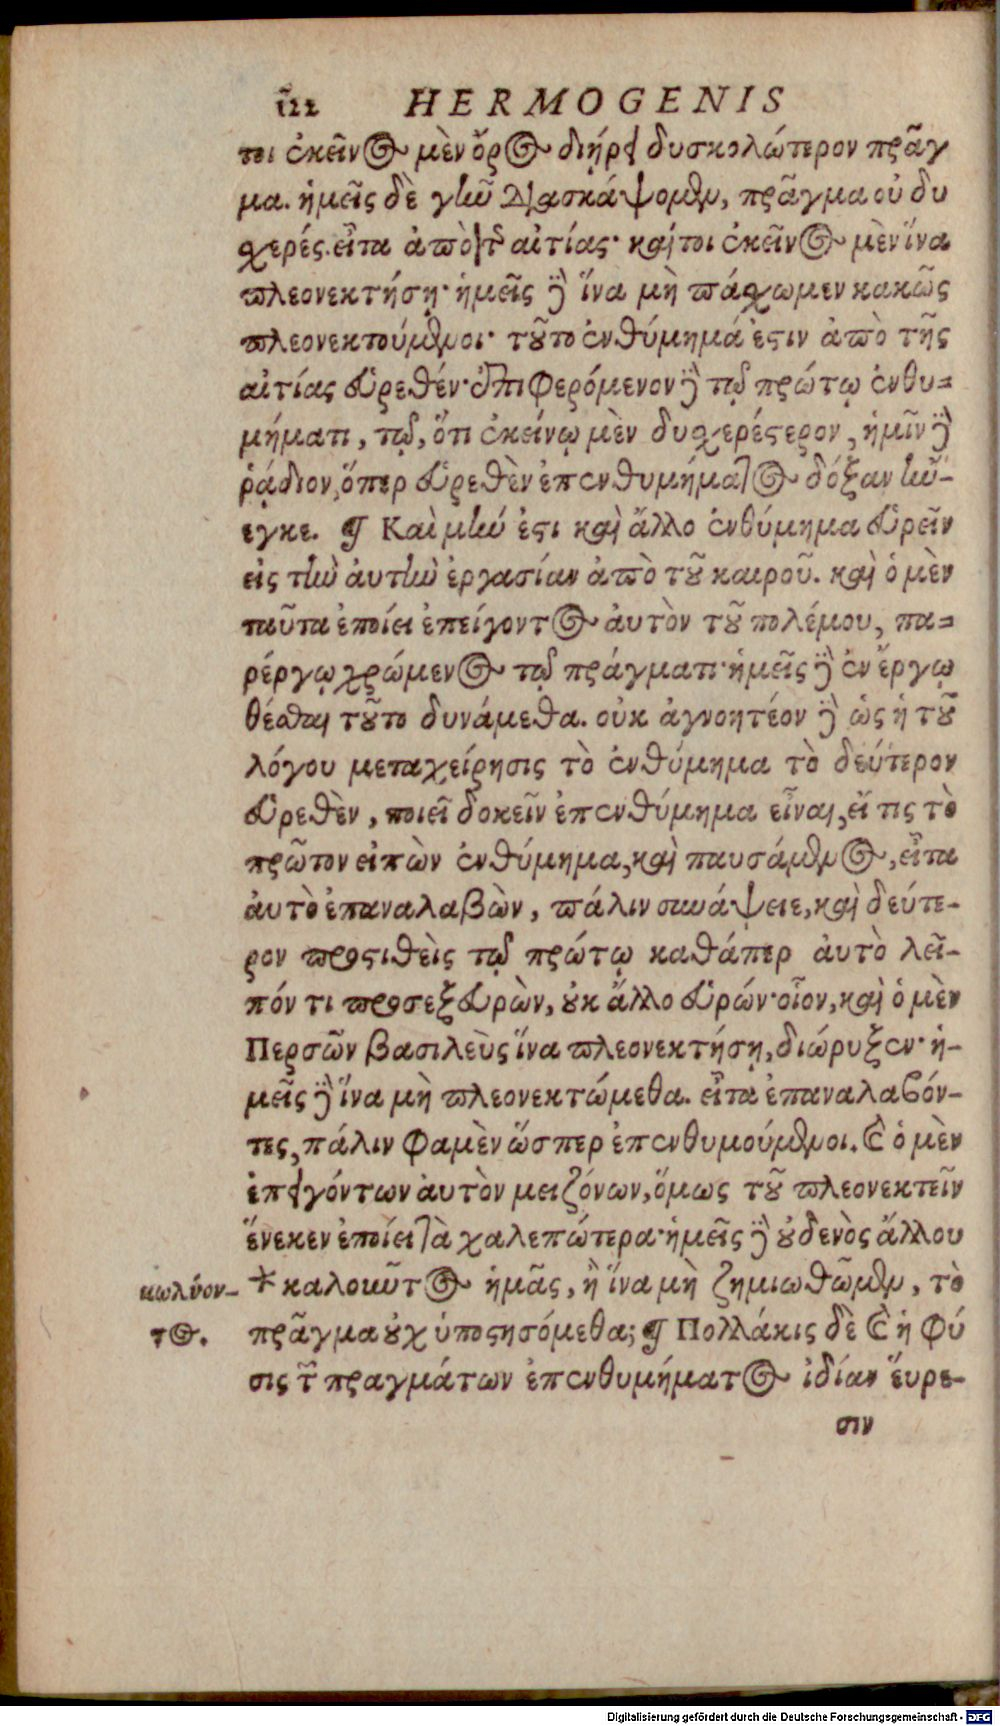 122 HERMOGENIS
τοι ἐκεῖνος μὲν ὄρος διήρει δυσκολώτερον πρᾶγ
μα. ἡμεῖς δὲ γῆν διασκάψομεν, πρᾶγμα οὐ δυ
χερές. εἶτα ἀπὸ τῆς αἰτίας· καίτοι ἐκεῖνος μὲν ἵνα
πλεονεκτήσῃ· ἡμεῖς δὲ ἵνα μὴ πάσχωμεν κακῶς
πλεονεκτούμενοι· τοῦτο ἐνθύμημά ἐστιν ἀπὸ τῆς
αἰτίας εὑρεθέν· ἐπιφερόμενον δὲ τῷ πρώτῳ ἐνθυ-
μήματι, τῷ, ὅτι ἐκείνῳ μὲν δυσχερέστερον, ἡμῖν δὲ
ῥᾴδιον, ὅπερ εὑρεθὲν ἐπενθυμήματος δόξαν ἤν-
εγκε. ¶ Καὶ μήν ἐστι καὶ ἄλλο ἐνθύμημα εὑρεῖν
εἰς τὴν ἀυτὴν ἐργασίαν ἀπὸ τοῦ καιροῦ. καὶ ὁ μὲν
ταῦτα ἐποίει ἐπείγοντος ἀυτὸν τοῦ πολέμου, πα-
ρέργῳ χρώμενος τῷ πράγματι· ἡμεῖς δὲ ἐν ἔργῳ
θέσθαι τοῦτο δυνάμεθα. οὐκ ἀγνοητέον δὲ ὡς ἡ τοῦ
λόγου μεταχείρησις τὸ ἐνθύμημα τὸ δεύτερον
εὑρεθὲν, ποιεῖ δοκεῖν ἐπενθύμημα εἶναι, εἴ τις τὸ
πρῶτον εἰπὼν ἐνθύμημα, καὶ παυσάμενος, εἶτα
ἀυτὸ ἐπαναλαβὼν, πάλιν συνάψειε, καὶ δεύτε-
ρον προστιθεὶς τῷ πρώτῳ καθάπερ ἀυτὸ λεῖ-
πόν τι προσεξευρὼν, οὐκ ἄλλο εὑρών· οἷον, καὶ ὁ μὲν
Περσῶν βασιλεὺς ἵνα πλεονεκτήσῃ, διώρυξεν· ἡ-
μεῖς δὲ ἵνα μὴ πλεονεκτώμεθα. εἶτα ἐπαναλαβόν-
τες, πάλιν φαμὲν ὥσπερ ἐπενθυμούμενοι. καὶ ὁ μὲν
ἐπειγόντων ἀυτὸν μειζόνων, ὅμως τοῦ πλεονεκτεῖν
ἕνεκεν ἐποίει τὰ χαλεπώτερα· ἡμεῖς δὲ οὐδενὸς ἄλλου
* καλοῦντος ἡμᾶς, ἢ ἵνα μὴ ζημιωθῶμεν, τὸ
κωλύον-
τος.
πρᾶγμα οὐχ ὑποστησόμεθα; ¶ Πολλάκις δὲ καὶ ἡ φύ
σις τῶν πραγμάτων ἐπενθυμήματος ἰδίαν ἕυρε-
σιν
Digitalisierung gefördert durch die Deutsche Forschungsgemeinschaft - DFG